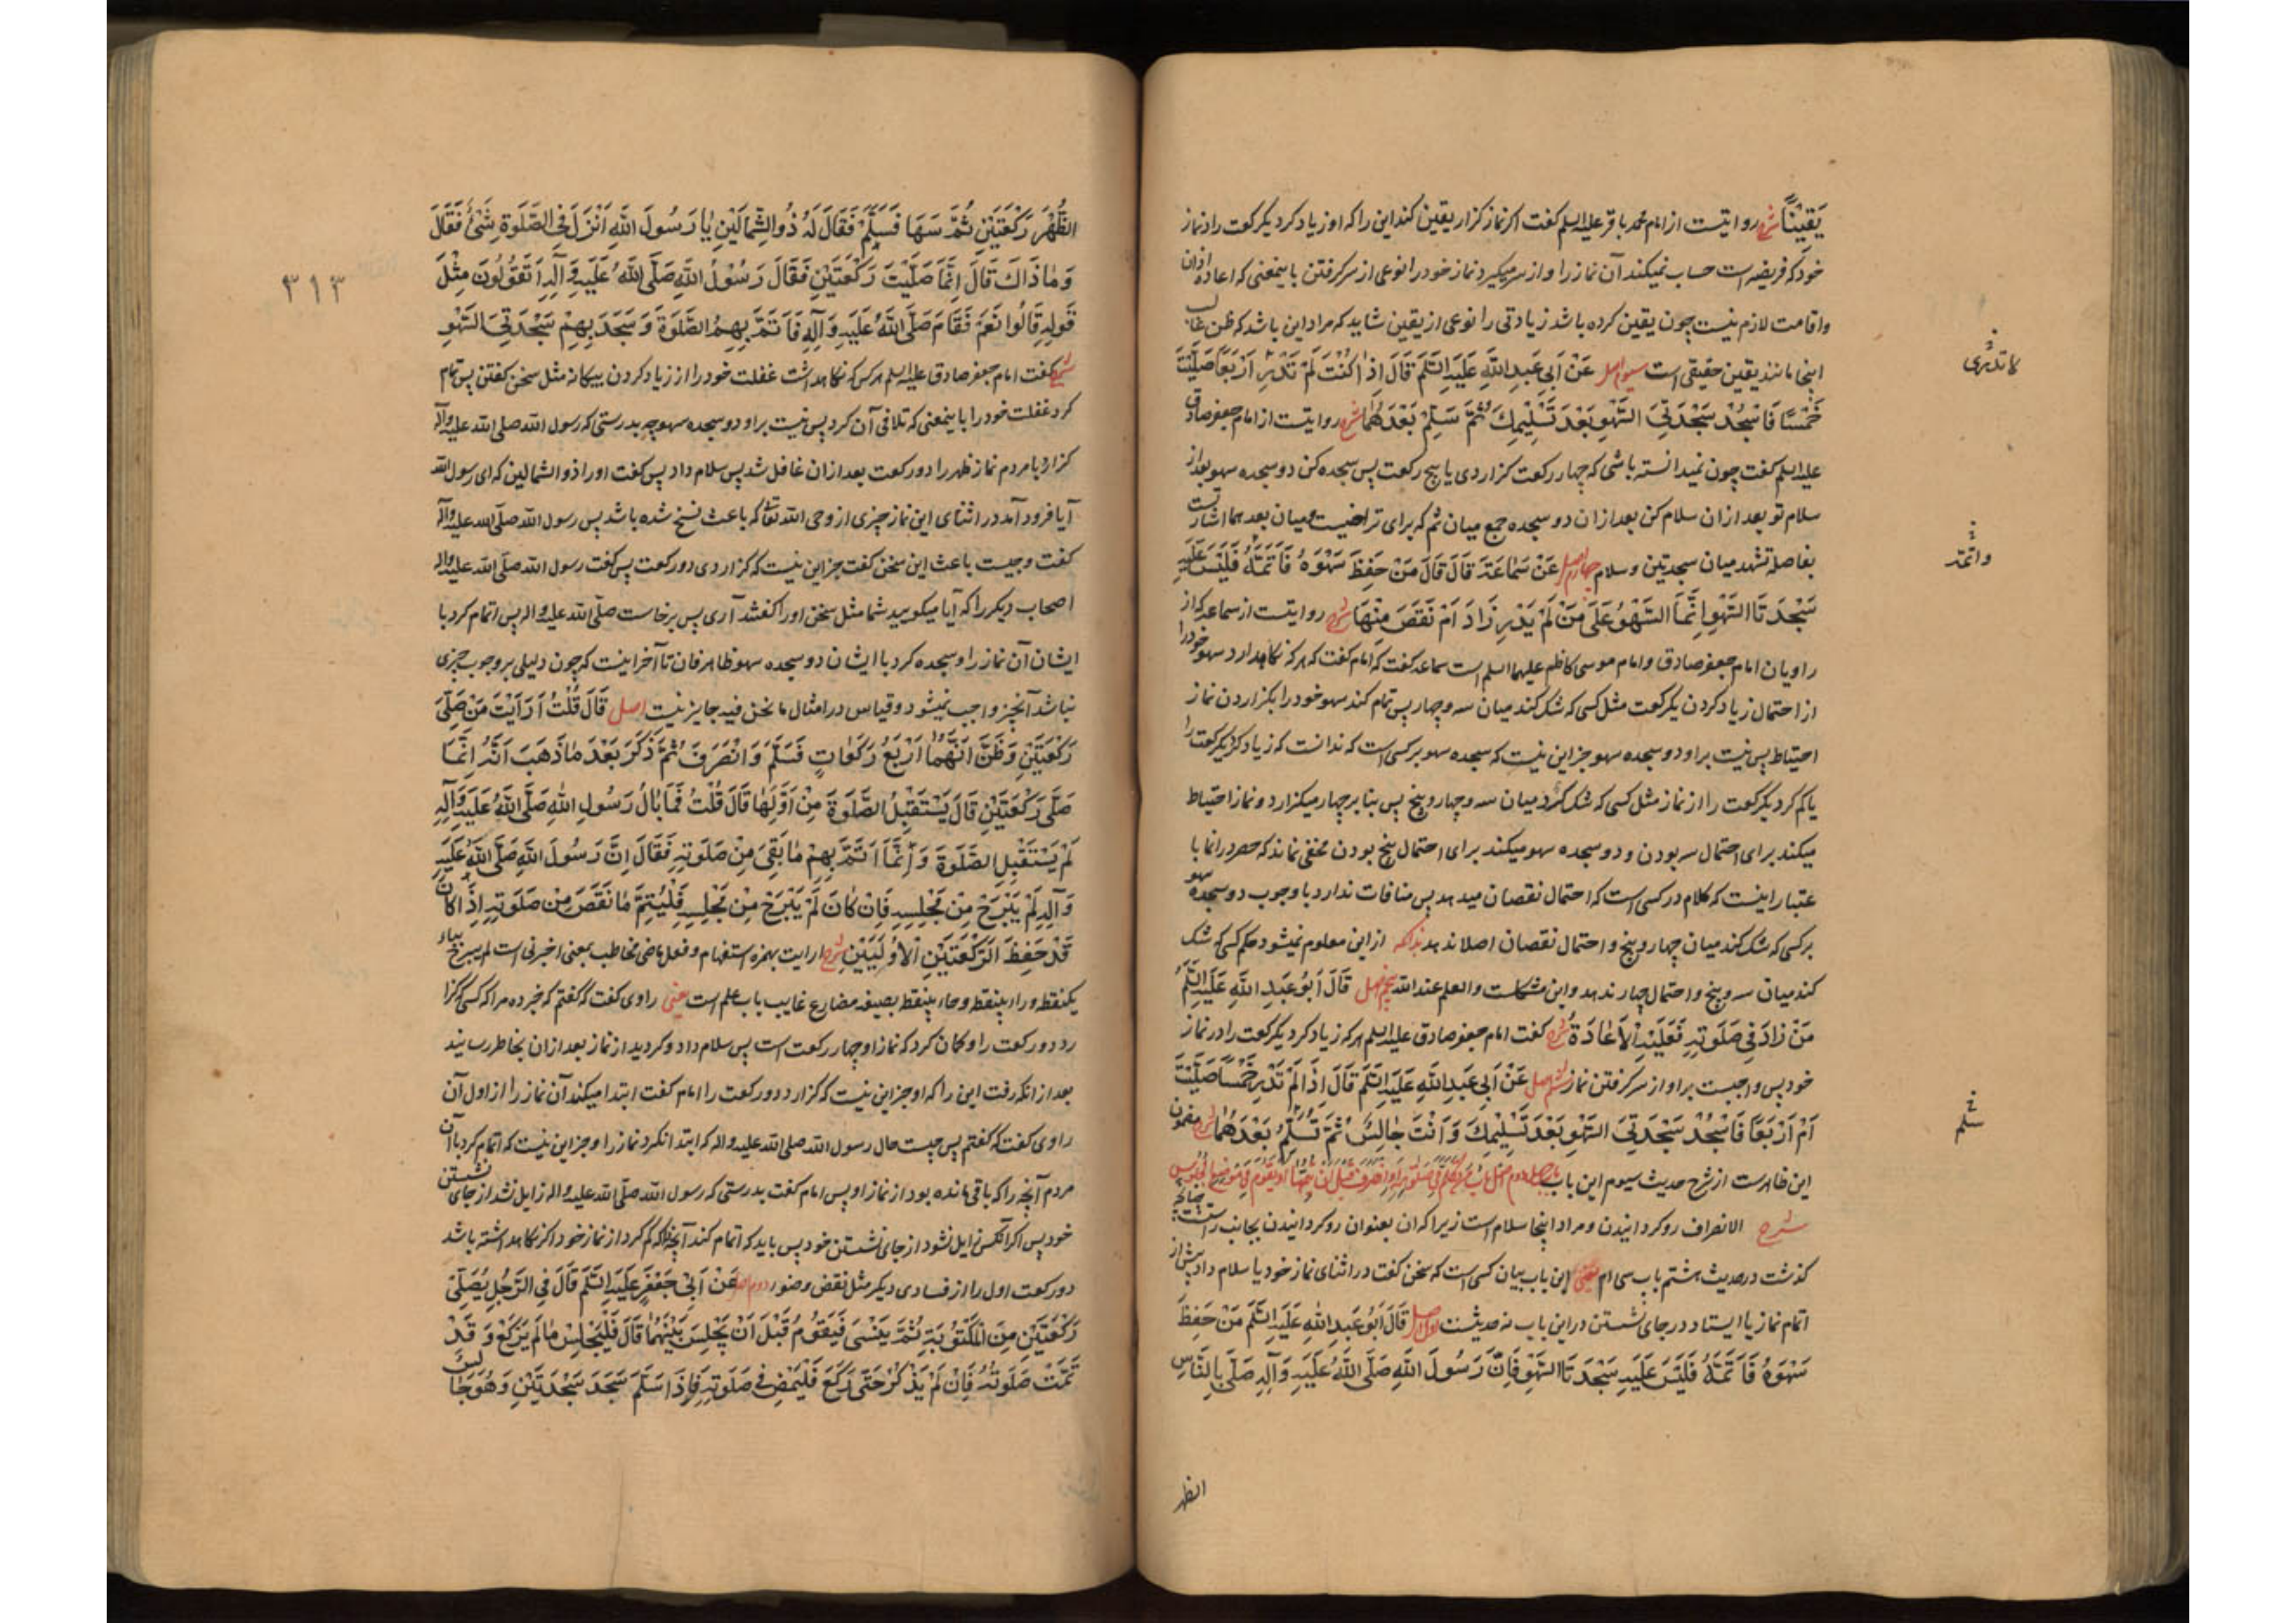 یَقِیْناً شرح روایتست از امام محمد باقر علیه السلم کفت اکر نماز کزار یقین کند این را که او زیاد کرد یکرکعت را در نماز
خود که فریضه است حساب نمیکند آن نماز را و از سر میکیرد نماز خود را نوعی از سر کرفتن باینمعنی که اعاده اذان
واقامت لازم نیست چون یقین کرده باشد زیادتی را نوعی از یقین شاید که مراد این باشد که ظن غالب
اینجا مانند یقین حقیقی است سیوم اصل عَنْ اَبی عَبدِ اللّٰهِ عَلَیهِ السَّلَم قَالَ اِذَا کُنْتَ لَمْ تَدْرِ اَرْبَعًا صَلَّیْتَ
خَمْسًا فَاسْجُدْ سَجْدَتَیِ السَّهْوِ بَعْدَ تَسْلِیمِكَ ثُمَّ سَلِّمْ بَعْدَهُمَا شرح روایتست از امام جعفر صادق
علیه السلم کفت چون نمیدانسته باشی که چهار رکعت کزاردی یا پنج رکعت پس سجده کن دو سجده سهو بعد از
سلام تو بعد ازان سلام کن بعد ازان دو سجده جمع میان ثم که برای تراخیست و میان بعدهما اشارتست
بفاصله تشهد میان سجدتین وسلام چهارم اصل عَنْ سَمَاعَةَ قَالَ قَالَ مَنْ حَفِظَ سَهْوَهُ فَاَتَمَّهُ فَلَیْسَ عَلَیْهِ
سَجْدَتَا السَّهْوِ اِنَّمَا السَّهْوُ عَلَی مَنْ لَمْ یَدْرِ زَادَ اَمْ نَقَصَ مِنْهَا شرح روایتست از سماعه که از
راویان امام جعفر صادق و امام موسی کاظم علیهما السلم است سماعه کفت که امام کفت که هر که نکاهدارد سهو خود را
از احتمال زیاد کردن یکرکعت مثل کسی که شک کند میان سه و چهار پس تمام کند سهو خود را بکزاردن نماز
احتیاط پس نیست بر او دو سجده سهو جز این نیست که سجده سهو بر کسی است که ندانست که زیاد کرد یکرکعت را
یا کم کرد یکرکعت را از نماز مثل کسی که شک کرد میان سه و چهار و پنج پس بنا بر چهار میکزارد و نماز احتیاط
میکند برای احتمال سه بودن و دو سجده سهو میکند برای احتمال پنج بودن مخفی نماند که حصر در انما با
عتبار اینست که کلام در کسی است که احتمال نقصان میدهد پس منافات ندارد با وجوب دو سجده سهو
بر کسی که شک کند میان چهار و پنج و احتمال نقصان اصلا ندهد بدانکه از این معلوم نمیشود حکم کسی که شک
کند میان سه و پنج و احتمال چهار ندهد و این مشکلست والعلم عند الله پنجم اصل قَالَ اَبُو عَبدِ اللّٰهِ عَلَیهِ السَّلَمُ
مَنْ زَادَ فی صَلَوتِهِ فَعَلَیْهِ الْاِعَادَةُ شرح کفت امام جعفر صادق علیه السلم هر که زیاد کرد یکرکعت را در نماز
خود پس واجبست بر او از سر کرفتن نماز ششم اصل عَنْ اَبی عَبدِ اللّٰهِ عَلَیهِ السَّلَم قَالَ اِذَا لَمْ تَدْرِ خَمْسًا صَلَّیْتَ
اَمْ اَرْبَعًا فَاسْجُدْ سَجْدَتَیِ السَّهْوِ بَعْدَ تَسْلِیمِكَ وَاَنْتَ جَالِسٌ ثُمَّ تُسَلِّمُ بَعْدَهُمَا شرح مضمون
این ظاهرست از شرح حدیث سیوم این باب
شرح الانصراف رو کردانیدن و مراد اینجا سلام است زیرا که آن بعنوان رو کردانیدن بجانب راست
کذشت در حدیث هشتم باب سی ام یعنی این باب بیان کسی است که سخن کفت در اثنای نماز خود یا سلام داد پیش از
اتمام نماز یا ایستاد در جای نشستن در این باب نه حدیثست اول اصل قَالَ اَبُو عَبدِ اللّٰهِ عَلَیهِ السَّلَم مَنْ حَفِظَ
سَهْوَهُ فَاَتَمَّهُ فَلَیْسَ عَلَیهِ سَجْدَتَا السَّهْوِ فَاِنَّ رَسُولَ اللّٰهِ صَلَّی اللّٰهُ عَلَیهِ وَآلِهِ صَلَّی بِالنَّاسِ
الظهر
لا تدری
واتمه
سلم
٣١٣
الظُّهْرَ رَکْعَتَیْنِ ثُمَّ سَهَا فَسَلَّمَ فَقَالَ لَهُ ذُو الشِّمَالَیْنِ یَا رَسُولَ اللّٰهِ اَنْزَلَ فِی الصَّلَوةِ شَیْءٌ فَقَالَ
وَمَا ذَاكَ قَالَ اِنَّمَا صَلَّیْتَ رَکْعَتَیْنِ فَقَالَ رَسُولُ اللّٰهِ صَلَّی اللّٰهُ عَلَیهِ وَآلِهِ اَتَقُولُونَ مِثْلَ
قَوْلِهِ قَالُوا نَعَمْ فَقَامَ صَلَّی اللّٰهُ عَلَیهِ وَآلِهِ فَاَتَمَّ بِهِمُ الصَّلَوةَ وَسَجَدَ بِهِمْ سَجْدَتَیِ السَّهْوِ
شرح کفت امام جعفر صادق علیه السلم هر کس که نکاهداشت غفلت خود را از زیاد کردن بیکانه مثل سخن کفتن پس تمام
کرد غفلت خود را باینمعنی که تلافی آن کرد پس نیست بر او دو سجده سهو چه بدرستی که رسول الله صلی الله علیه وآله
کزارد با مردم نماز ظهر را دو رکعت بعد ازان غافل شد پس سلام داد پس کفت او را ذو الشمالین که ای رسول الله
آیا فرود آمد در اثنای این نماز چیزی از وحی الله تعالی که باعث نسخ شده باشد پس رسول الله صلّی الله علیه وآله
کفت و چیست باعث این سخن کفت جز این نیست که کزاردی دو رکعت پس کفت رسول الله صلّی الله علیه وآله
اصحاب دیکر را که آیا میکویید شما مثل سخن او را کفتند آری پس برخاست صلّی الله علیه وآله پس اتمام کرد با
ایشان آن نماز را و سجده کرد با ایشان دو سجده سهو ظاهر فان تا آخر اینست که چون دلیلی بر وجوب چیزی
نباشد آنچیز واجب نمیشود و قیاس در امثال ما نحن فیه جایز نیست اصل قَالَ قُلْتُ اَرَاَیْتَ مَنْ صَلَّی
رَکْعَتَیْنِ وَظَنَّ اَنَّهُمَا اَرْبَعُ رَکَعَاتٍ فَسَلَّمَ وَانْصَرَفَ ثُمَّ ذَکَرَ بَعْدَ مَا ذَهَبَ اَنَّهُ اِنَّمَا
صَلَّی رَکْعَتَیْنِ قَالَ یَسْتَقْبِلُ الصَّلَوةَ مِنْ اَوَّلِهَا قَالَ قُلْتُ فَمَا بَالُ رَسُولِ اللّٰهِ صَلَّی اللّٰهُ عَلَیهِ وَآلِهِ
لَمْ یَسْتَقْبِلِ الصَّلَوةَ وَاِنَّمَا اَتَمَّ بِهِمْ مَا بَقِیَ مِنْ صَلَوتِهِ فَقَالَ اِنَّ رَسُولَ اللّٰهِ صَلَّی اللّٰهُ عَلَیهِ
وَآلِهِ لَمْ یَبْرَحْ مِنْ مَجْلِسِهِ فَاِنْ کَانَ لَمْ یَبْرَحْ مِنْ مَجْلِسِهِ فَلْیُتِمَّ مَا نَقَصَ مِنْ صَلَوتِهِ اِذَا کَانَ
قَدْ حَفِظَ الرَّکْعَتَیْنِ الْاُولَیَیْنِ شرح ارایت بهمزه استفهام و فعل ماضی مخاطب بمعنی اخبرنی است لم یبرح بباء
یکنقطه و راء بینقطه و حاء بینقطه بصیغه مضارع غایب باب علم است یعنی راوی کفت که کفتم که خبر ده مرا که کسی که کزا
رد دو رکعت را و کمان کرد که نماز او چهار رکعت است پس سلام داد و کردید از نماز بعد ازان بخاطر رسانید
بعد از انکه رفت این را که او جز این نیست که کزارد دو رکعت را امام کفت ابتدا میکند آن نماز را از اول آن
راوی کفت که کفتم پس چیست حال رسول الله صلی الله علیه واله که ابتدا نکرد نماز را و جز این نیست که اتمام کرد با آن
مردم آنچه را که باقی مانده بود از نماز او پس امام کفت بدرستی که رسول الله صلّی الله علیه واله زایل نشد از جای نشستن
خود پس اکر آنکس زایل نشود از جای نشستن خود پس باید که اتمام کند آنچه را که کم کرد از نماز خود اکر نکاهداشته باشد
دو رکعت اول را از فسادی دیکر مثل نقض وضو دوم اصل عَنْ اَبِی جَعْفَرٍ عَلَیهِ السَّلَم قَالَ فِی الرَّجُلِ یُصَلِّی
رَکْعَتَیْنِ مِنَ الْمَکْتُوبَةِ ثُمَّ یَنْسَی فَیَقُومُ قَبْلَ اَنْ یَجْلِسَ بَیْنَهُمَا قَالَ فَلْیَجْلِسْ مَا لَمْ یَرْکَعْ وَقَدْ
تَمَّتْ صَلَوتُهُ فَاِنْ لَمْ یَذْکُرْ حَتَّی رَکَعَ فَلْیَمْضِ فی صَلَوتِهِ فَاِذَا سَلَّمَ سَجَدَ سَجْدَتَیْنِ وَهُوَ جَالِسٌ